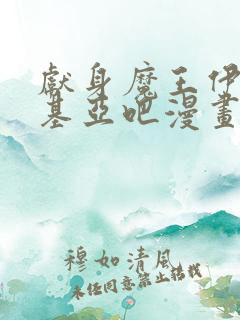 獻身魔王伊
基亞吧漫畫
穆如清風
未經同意禁止轉載